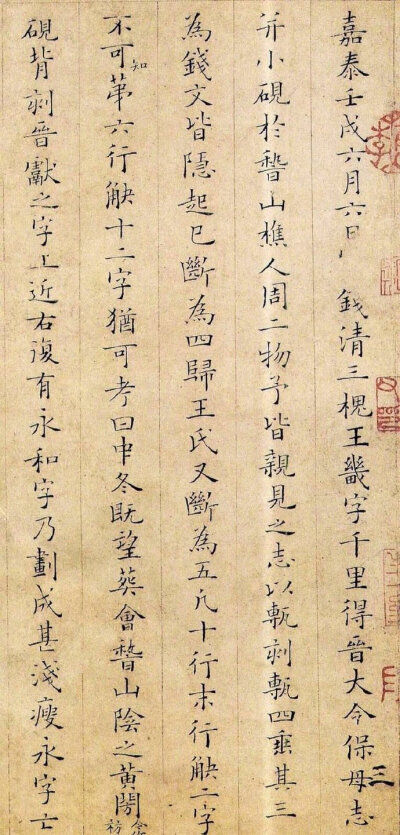 嘉泰壬戌六月六日錢清三槐王畿字千里得晉大令保母志三
并小硯於稽山樵人周二物予皆親見之志以甎刻甎四垂其三
為錢文皆隱起已斷為四歸王氏又斷為五凡十行末行觖二字
不可知第六行觖十二字猶可考曰中冬既望葬會稽山陰之黃閍
硯背刻晉獻之字上近右復有永和字乃劃成甚淺瘦永字亡